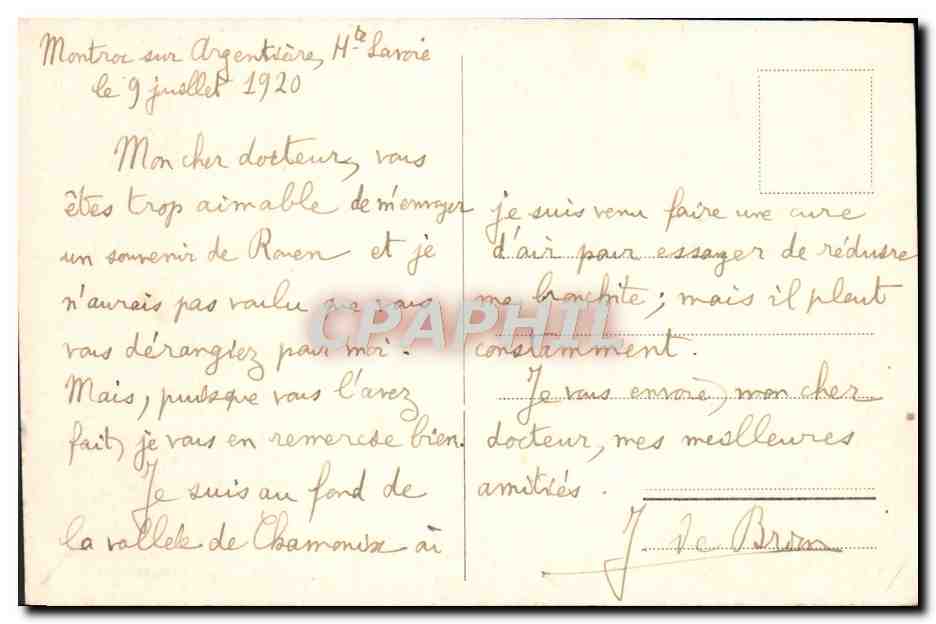 Montroc sur Argentière, Hte Savoie
le 9 juillet 1920
Mon cher docteur, vous
êtes trop aimable de m'envoyer
un souvenir de Rouen et je
n'aurais pas voulu que vous
vous dérangiez pour moi.
Mais, puisque vous l'avez
fait, je vous en remercie bien.
Je suis au fond de
la vallée de Chamonix où
je suis venu faire une cure
d'air pour essayer de réduire
ma bronchite ; mais il pleut
constamment.
Je vous envoie, mon cher
docteur, mes meilleures
amitiés.
J de
CPAPHIL